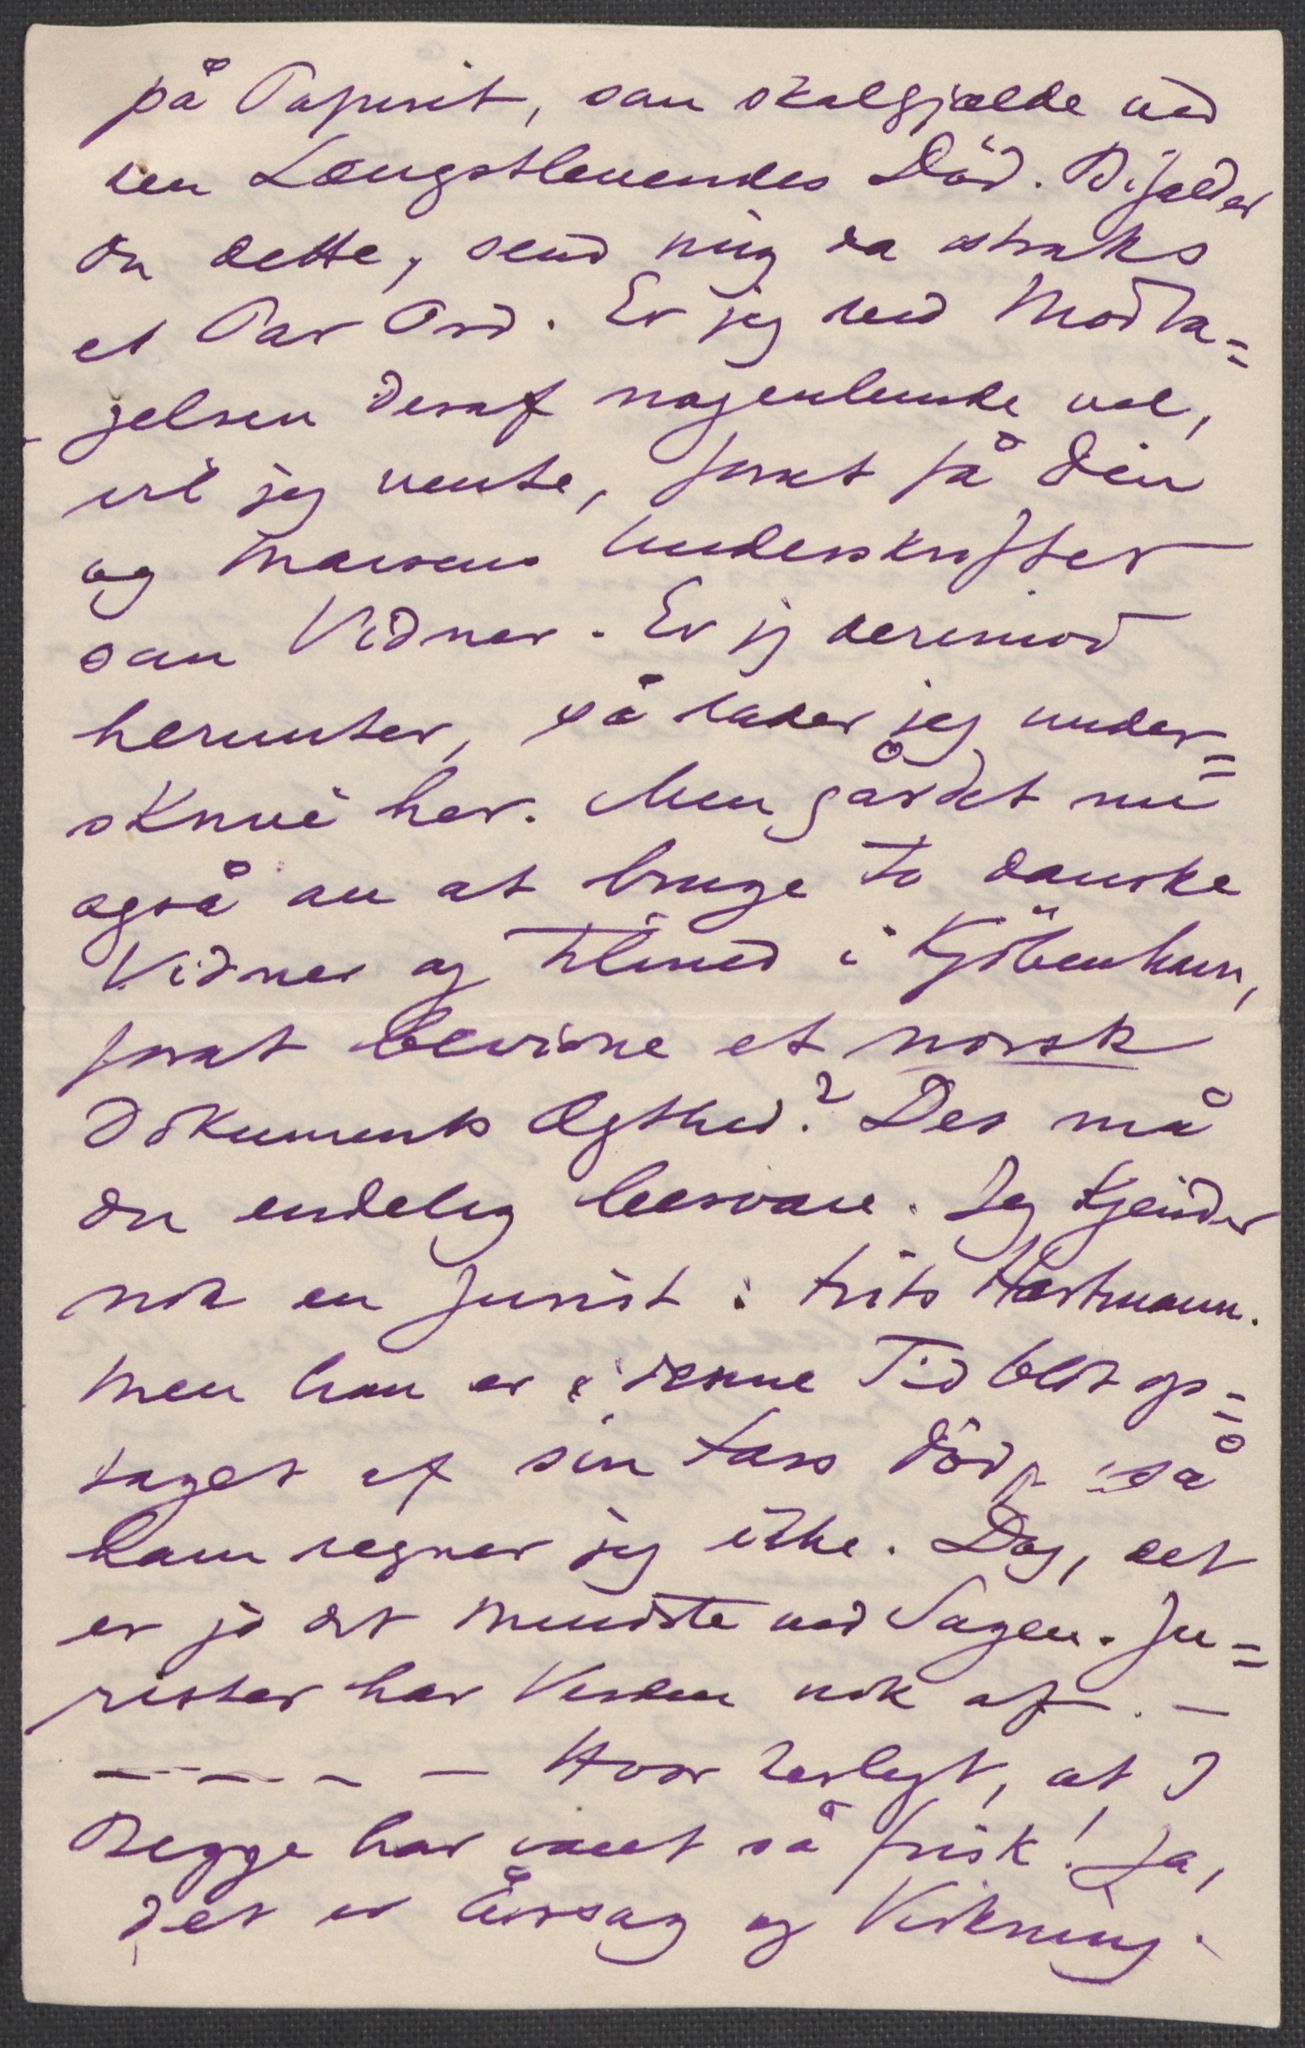 på Papiret, som skal gjælde ved
den Længstlevendes Död. Bifalder
du dette, send mig da straks
et Par Ord. Er jeg ved Modta=
gelsen deraf nogenlunde vel,
vil jeg vente, forat få din
og Maisens Underskrifter
som Vidner. Er jeg derimod
herunter, så lader jeg under=
skrive her. Men går det nu
også an at bruge to danske
Vidner og tilmed i Kjöbenhavn,
forat bevidne et norsk
Dokuments Ægthed? Det må
du endelig besvare. Jeg kjender
nok en Jurist: Frits Hartmann.
Men han er i denne Tid blot op=
taget af sin Fars Död, så
ham regner jeg ikke. Dog, det
er jo det mindste ved Sagen. Ju=
rister har Verden nok af. —
— — — — Hvor herligt, at I
Begge har været så frisk! Ja,
det er Årsag og Virkning.